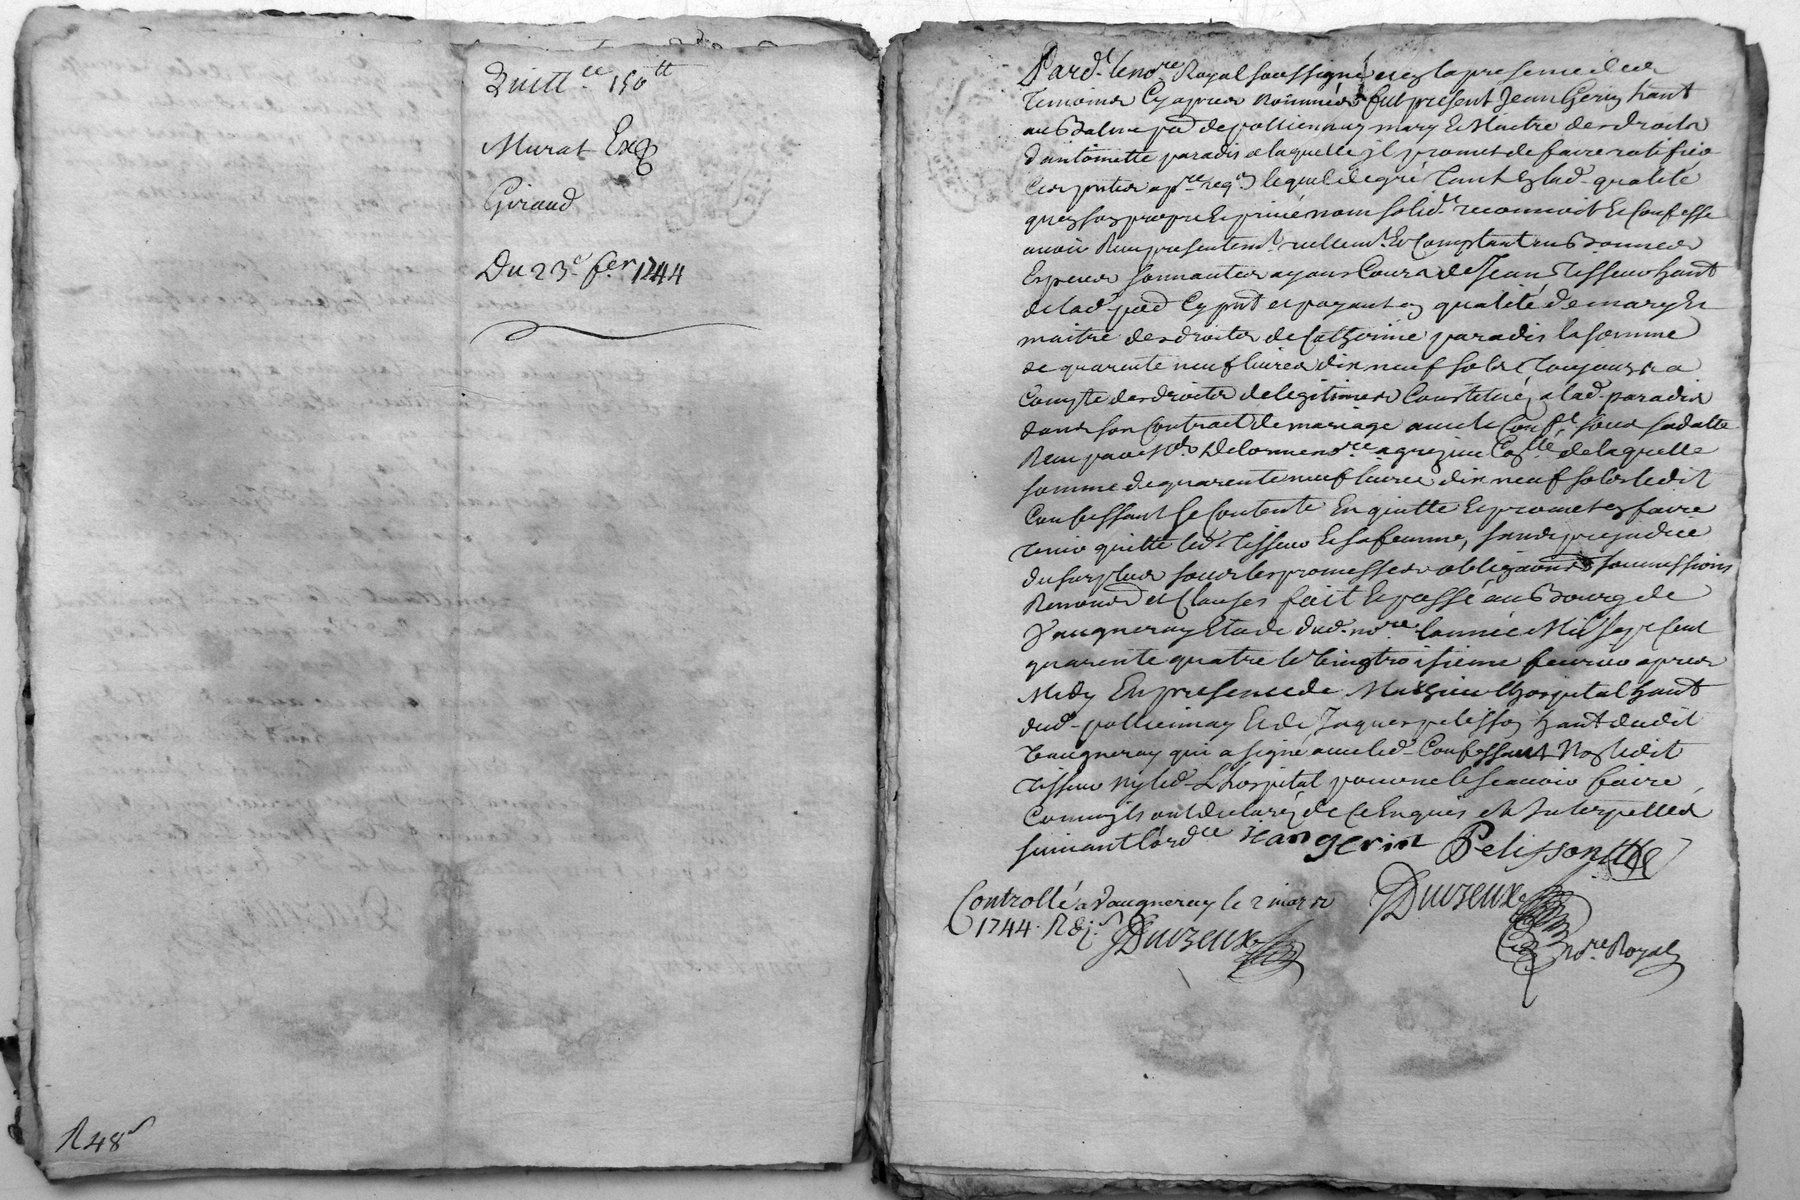 Quitt.ce 150tt
Murat Exp
Giraud
Du 23e fer 1744
R 48s
Pard.t le no.re Royal soussigné et en la presence des
Temoins Cy apres nommés fut present Jean Gerin hant
au Balme p.sse de pollienay mary Et Maitre des droits
d'antoinette paradis a laquelle jl promet de faire ratifier
Ces p.ntes ap.re req.on lequel de gré Tant En lad. qualité
qu'en son propre Et privé nom solid.t reconnoit Et Confesse
avoir Reçu presentem.t reellem.t Et Comptant en Bonnes
Especes sonnantes ayans Cours de Jean Tisseur hant
de lad. p.sse Cy p.nt et payant en qualité de mary Et
maitre des droits de Catherine paradis la somme
de quarente neuf livres dix neuf sols
Compte des droits de legitimes Constitué a lad. paradis
dans son Contract de mariage avec le Conf.t sous sa datte
Reçu par
somme de quarente neuf livres dix neuf sols ledit
Confessant se Contente En quitte Et promet en faire
Tenir quitte led. Tisseur Et sa femme, sans prejudice
du surplus sous les promesses obligaons soumissions
Renonc.ons et Clauses fait Et passé au Bourg de
Vaugneray Etude dud. no.re l'année Mil Sept Cent
quarente quatre le vingtroisieme fevrier apres
Midy En presence de Mathieu Lhospital hant
dud. pollienay Et de Jaques pelisson hant dudit
Vaugneray qui a signé avec led. Confessant Non ledit
Tisseur ny led. Lhospital pour ne le scavoir faire
Comm'jls ont declaré de Ce Enquis et Interpellés
suivant l'ord.ce Jean gerin Pelisson
Controllé a Vaugneray le 2 mars
1744. R 6s. Duvzeux
Duvzeux
no.re Royal